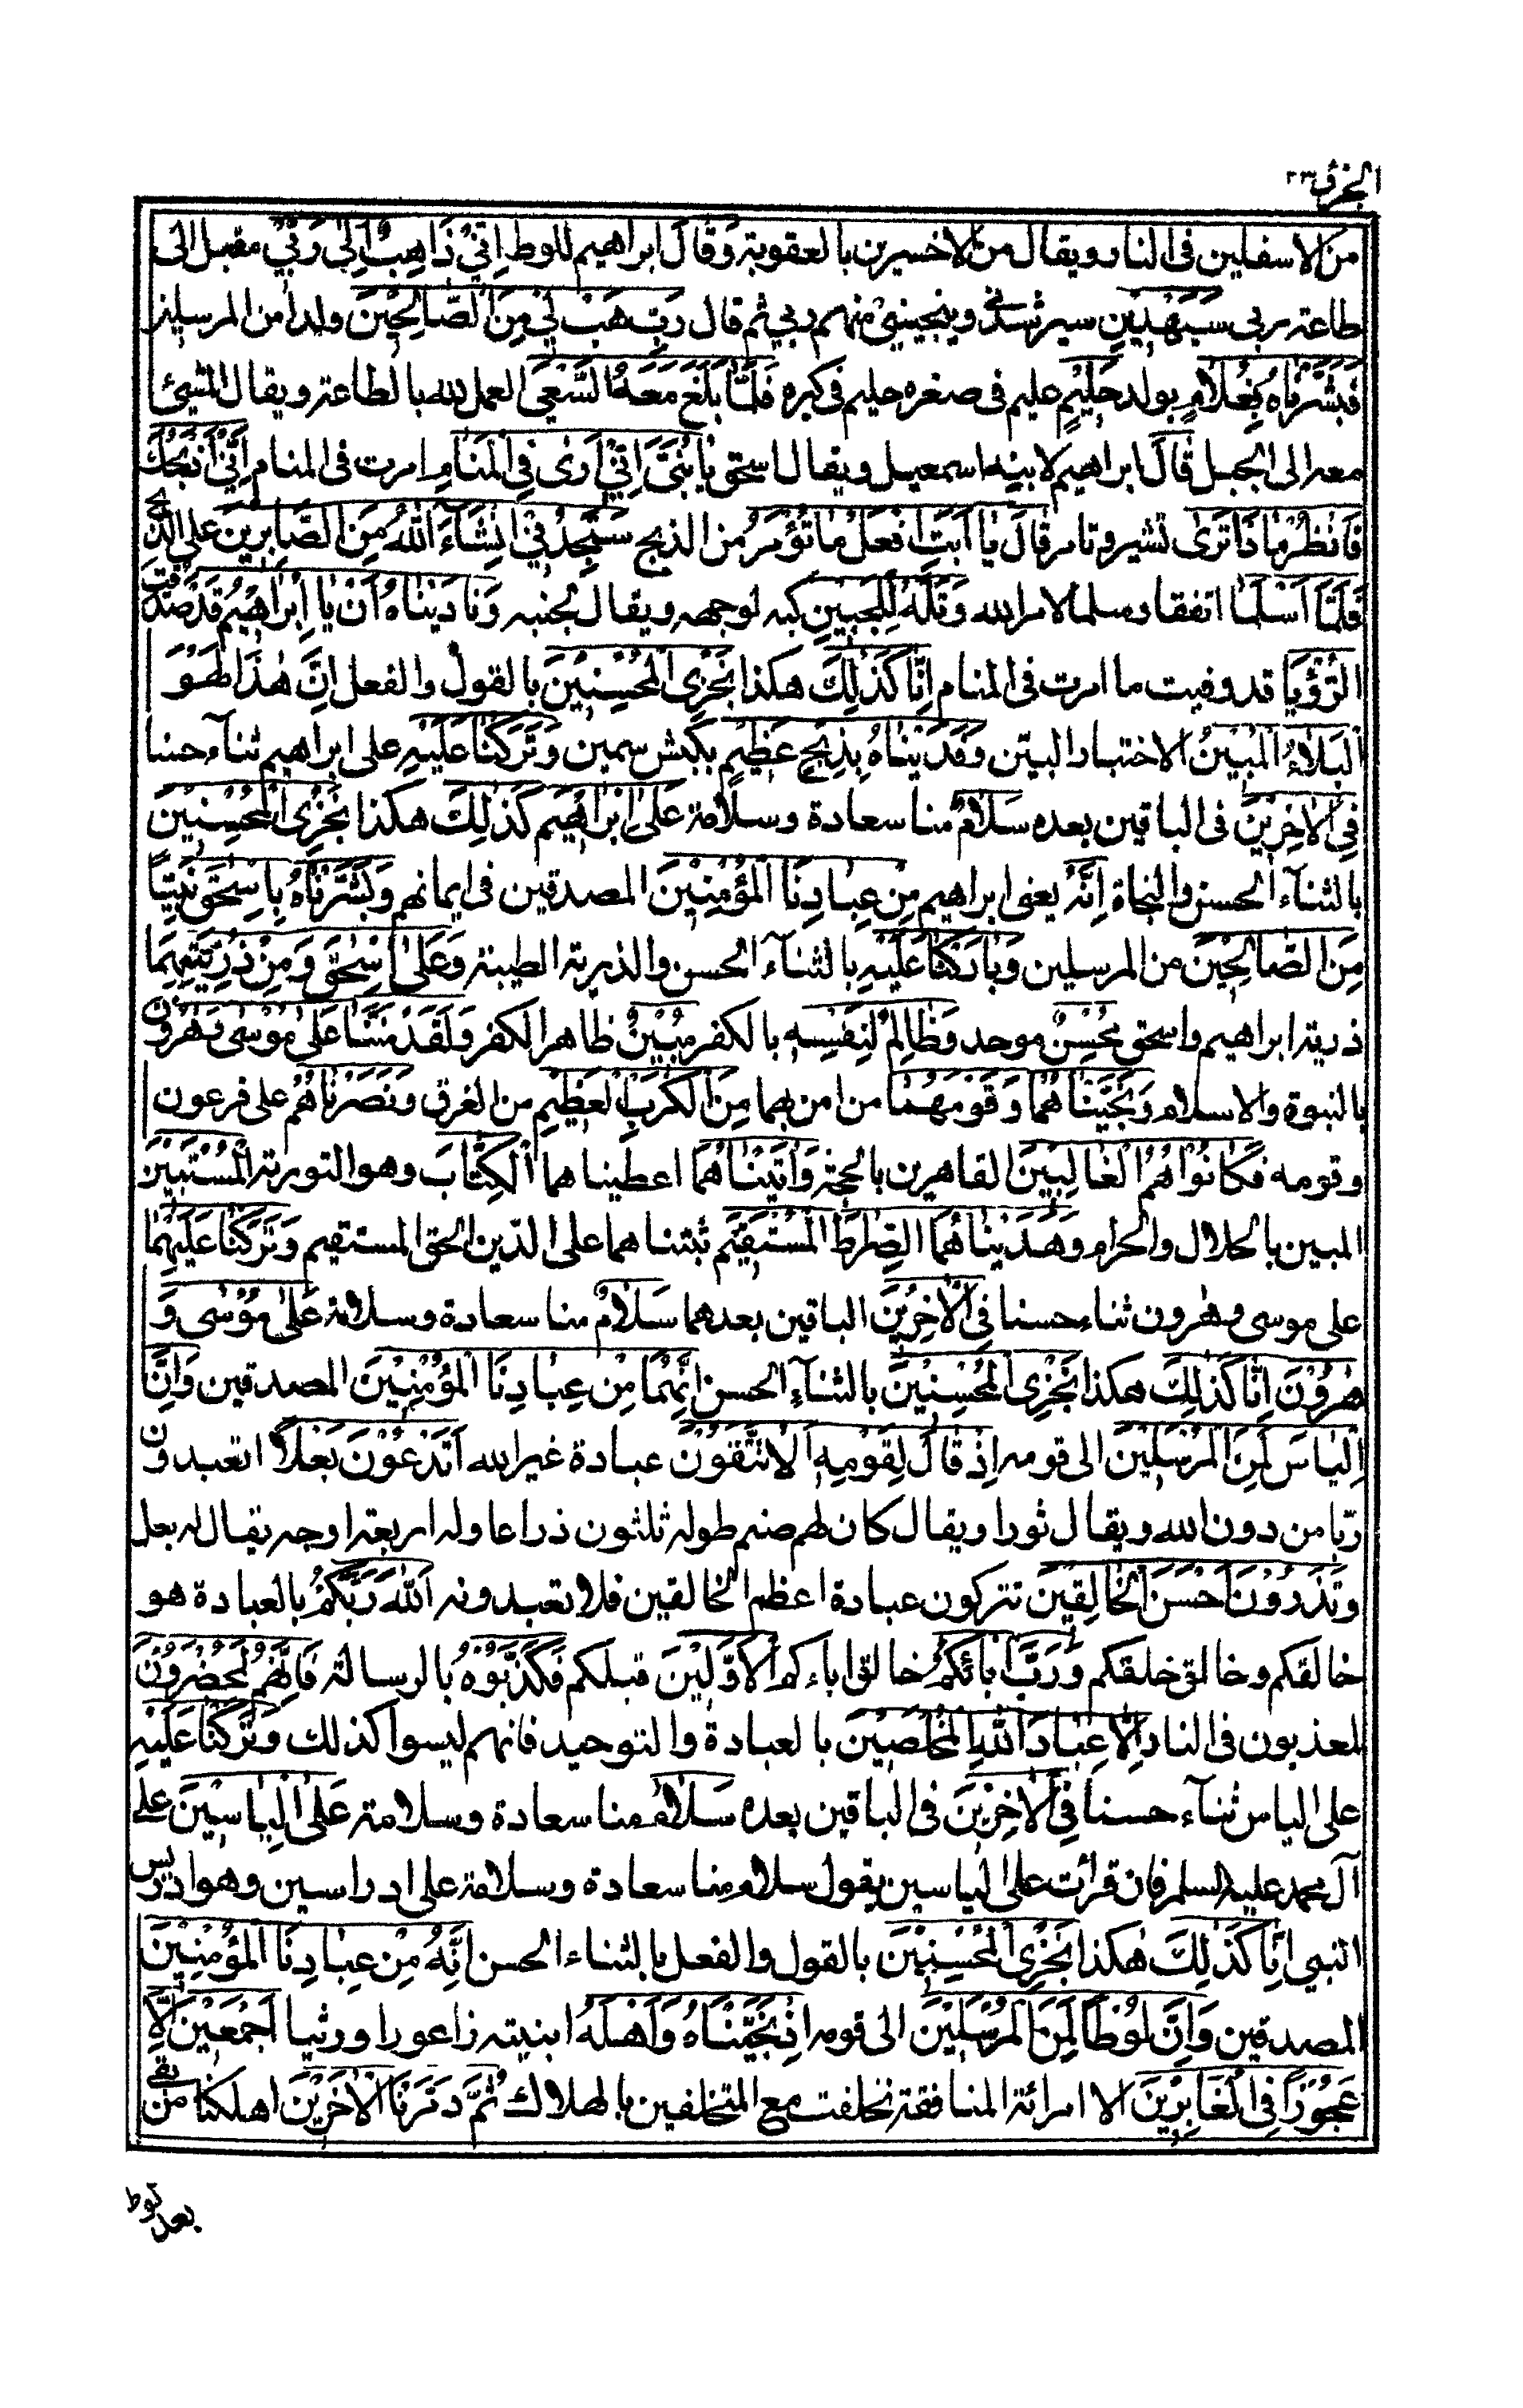 الجزء ٢٣
من الاسفلين فى النار ويقال من الاخسرين بالعقوبة وَقَالَ ابراهيم للوط اِنِّيْ ذَاهِبٌ اِلٰى رَبِّيْ مقبل الى
طاعة ربى سَيَهْدِيْنِ سيرشدنى وينجينى منهم ربي ثم قال رَبِّ هَبْ لِيْ مِنَ الصَّالِحِيْنَ ولدا من المرسلين
فَبَشَّرْنَاهُ بِغُلَامٍ بولد حَلِيْمٍ عليم فى صغره حليم فى كبره فَلَمَّا بَلَغَ مَعَهُ السَّعْيَ العمل لله بالطاعة ويقال المشيئ
معه الى الجبل قَالَ ابراهيم لابنه اسمعيل ويقال اسحق يَا بُنَيَّ اِنِّيْ اَرٰى فِي الْمَنَامِ امرت فى المنام اَنِّيْ اَذْبَحُكَ
فَانْظُرْ مَاذَا تَرٰى تشير وتامر قَالَ يَا اَبَتِ افْعَلْ مَا تُؤْمَرُ من الذبح سَتَجِدُنِيْ اِنْشَآءَ اللّٰهُ مِنَ الصَّابِرِيْنَ على الذبح
فَلَمَّا اَسْلَمَا اتفقا وسلما لامر الله وَتَلَّهُ لِلْجَبِيْنِ كبه لوجهه ويقال لجنبه وَنَادَيْنَاهُ اَنْ يَا اِبْرَاهِيْمُ قَدْ صَدَّقْتَ
الرُّؤْيَا قد وفيت ما امرت فى المنام اِنَّا كَذٰلِكَ هكذا نَجْزِى الْمُحْسِنِيْنَ بالقول والفعل اِنَّ هٰذَا لَهُوَ
الْبَلَاءُ الْمُبِيْنُ الاختبار البين وَفَدَيْنَاهُ بِذِبْحٍ عَظِيْمٍ بكبش سمين وَتَرَكْنَا عَلَيْهِ على ابراهيم ثنآء حسنا
فِى الْاٰخِرِيْنَ فى الباقين بعده سَلَامٌ منا سعادة وسلامة عَلٰى اِبْرَاهِيْمَ كَذٰلِكَ هكذا نَجْزِى الْمُحْسِنِيْنَ
بالثنآء الحسن والنجاة اِنَّهُ يعنى ابراهيم مِنْ عِبَادِنَا الْمُؤْمِنِيْنَ المصدقين فى ايمانهم وَبَشَّرْنَاهُ بِاِسْحٰقَ نَبِيًّا
مِنَ الصَّالِحِيْنَ من المرسلين وَبَارَكْنَا عَلَيْهِ بالثنآء الحسن والذرية الطيبة وَعَلٰى اِسْحٰقَ وَمِنْ ذُرِّيَّتِهِمَا
ذرية ابراهيم واسحق مُحْسِنٌ موحد وَظَالِمٌ لِنَفْسِهٖ بالكفر مُبِيْنٌ ظاهر الكفر وَلَقَدْ مَنَنَّا عَلٰى مُوْسٰى وَهٰرُوْنَ
بالنبوة والاسلام وَنَجَّيْنَاهُمَا وَقَوْمَهُمَا من امن بهما مِنَ الْكَرْبِ الْعَظِيْمِ من الغرق وَنَصَرْنَاهُمْ على فرعون
وقومه فَكَانُوْا هُمُ الْغَالِبِيْنَ القاهرين بالحجة وَاٰتَيْنَاهُمَا اعطيناهما الْكِتَابَ وهو التورية الْمُسْتَبِيْنَ
المبين بالحلال والحرام وَهَدَيْنَاهُمَا الصِّرَاطَ الْمُسْتَقِيْمَ ثبتناهما على الدين الحق المستقيم وَتَرَكْنَا عَلَيْهِمَا
على موسى وهٰرون ثناء حسنا فِى الْاٰخِرِيْنَ الباقين بعدهما سَلَامٌ منا سعادة وسلامة عَلٰى مُوْسٰى وَ
هٰرُوْنَ اِنَّا كَذٰلِكَ هكذا نَجْزِى الْمُحْسِنِيْنَ بالثنآء الحسن اِنَّهُمَا مِنْ عِبَادِنَا الْمُؤْمِنِيْنَ المصدقين وَاِنَّ
اِلْيَاسَ لَمِنَ الْمُرْسَلِيْنَ الى قومه اِذْ قَالَ لِقَوْمِهٖ اَلَا تَتَّقُوْنَ عبادة غير الله اَتَدْعُوْنَ بَعْلًا اتعبدون
ربّا من دون الله ويقال ثورا ويقال كان لهم صنم طوله ثلثون ذراعا وله اربعة اوجه يقال له بعل
وَتَذَرُوْنَ اَحْسَنَ الْخَالِقِيْنَ تتركون عبادة اعظم الخالقين فلا تعبدونه اَللّٰهَ رَبَّكُمْ بالعبادة هو
خالقكم وخالق خلقكم وَرَبَّ اٰبَائِكُمُ خالق اباءكم الْاَوَّلِيْنَ قبلكم فَكَذَّبُوْهُ بالرسالة فَاِنَّهُمْ لَمُحْضَرُوْنَ
لمعذبون فى النار اِلَّا عِبَادَ اللّٰهِ الْمُخْلَصِيْنَ بالعبادة والتوحيد فانهم ليسوا كذلك وَتَرَكْنَا عَلَيْهِ
على الياس ثنآء حسنا فِى الْاٰخِرِيْنَ فى الباقين بعده سَلَامٌ منا سعادة وسلامة عَلٰى اِلْيَاسِيْنَ على
آل محمد عليه السلم فان قرأت على الياسين يقول سلام منا سعادة وسلامة على ادراسين وهو ادريس
النبي اِنَّا كَذٰلِكَ هكذا نَجْزِى الْمُحْسِنِيْنَ بالقول والفعل بالثناء الحسن اِنَّهُ مِنْ عِبَادِنَا الْمُؤْمِنِيْنَ
المصدقين وَاِنَّ لُوْطًا لَمِنَ الْمُرْسَلِيْنَ الى قومه اِذْ نَجَّيْنَاهُ وَاَهْلَهُ ابنيته زاعورا ورثيا اَجْمَعِيْنَ اِلَّا
عَجُوْزًا فِى الْغَابِرِيْنَ الا امرائة المنافقة تخلفت مع المتخلفين بالهلاك ثُمَّ دَمَّرْنَا الْاٰخَرِيْنَ اهلكنا من بقى
بعد لوط